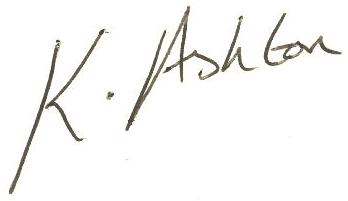 K. Ashton